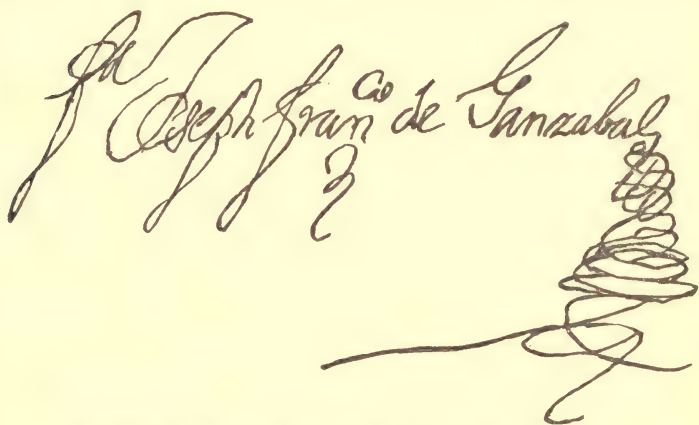 fr Joseph franco de Ganzabal